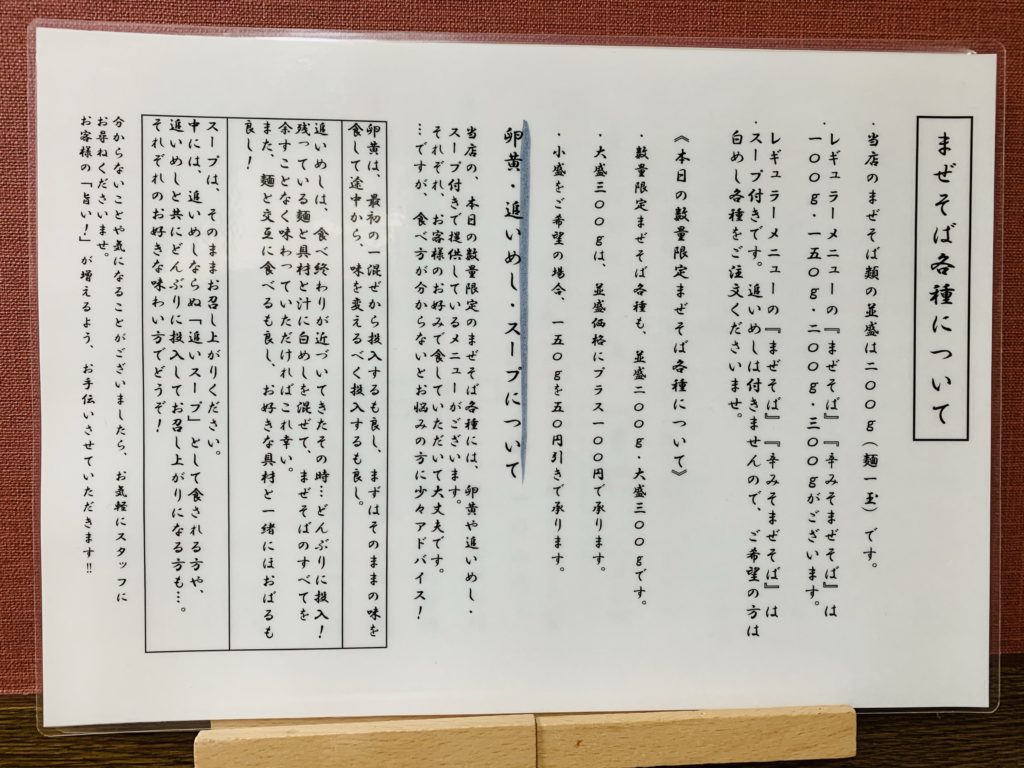 まぜそば各種について
・当店のまぜそば類の並盛は二〇〇g（麺一玉）です。
・レギュラーメニューの『まぜそば』『辛みそまぜそば』は
一〇〇g・一五〇g・二〇〇g・三〇〇gがございます。
レギュラーメニューの『まぜそば』『辛みそまぜそば』は
・スープ付きです。追いめしは付きませんので、ご希望の方は
白めし各種をご注文くださいませ。
《本日の数量限定まぜそば各種について》
・数量限定まぜそば各種も、並盛二〇〇g・大盛三〇〇gです。
・大盛三〇〇gは、並盛価格にプラス一〇〇円で承ります。
・小盛をご希望の場合、一五〇gを五〇円引きで承ります。
卵黄・追いめし・スープについて
当店の、本日の数量限定のまぜそば各種には、卵黄や追いめし・
スープ付きで提供しているメニューがございます。
それぞれ、お客様のお好みで食していただいて大丈夫です。
…ですが、食べ方が分からないとお悩みの方に少々アドバイス！
卵黄は、最初の一混ぜから投入するも良し、まずはそのままの味を
食して途中から、味を変えるべく投入するも良し。
追いめしは、食べ終わりが近づいてきたその時…どんぶりに投入！
残っている麺と具材と汁に白めしを混ぜて、まぜそばのすべてを
余すことなく味わっていただければこれ幸い。
また、麺と交互に食べるも良し、お好きな具材と一緒にほおばるも
良し！
スープは、そのままお召し上がりください。
中には、追いめしならぬ「追いスープ」として食される方や、
追いめしと共にどんぶりに投入してお召し上がりになる方も…。
それぞれのお好きな味わい方でどうぞ！
分からないことや気になることがございましたら、お気軽にスタッフに
お尋ねくださいませ。
お客様の「旨い！」が増えるよう、お手伝いさせていただきます!!